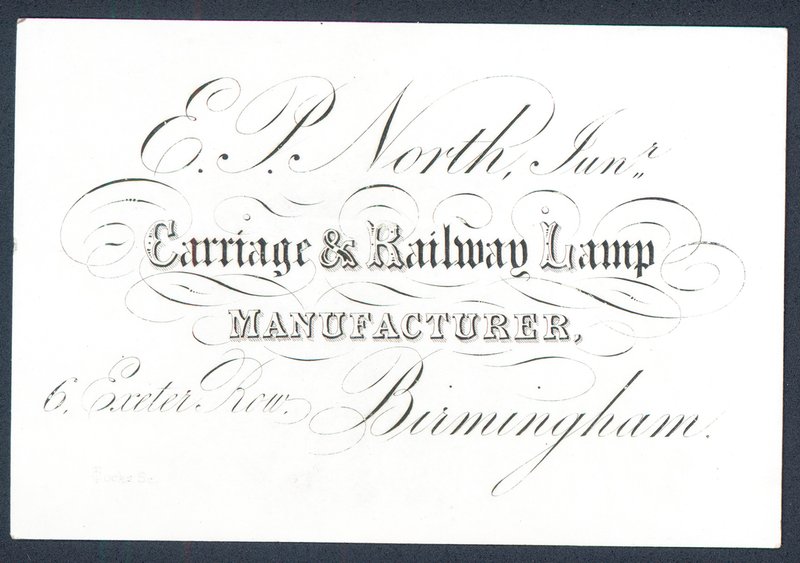 E. P. North, Junr.
Carriage & Railway Lamp
MANUFACTURER,
6, Exeter Row. Birmingham.